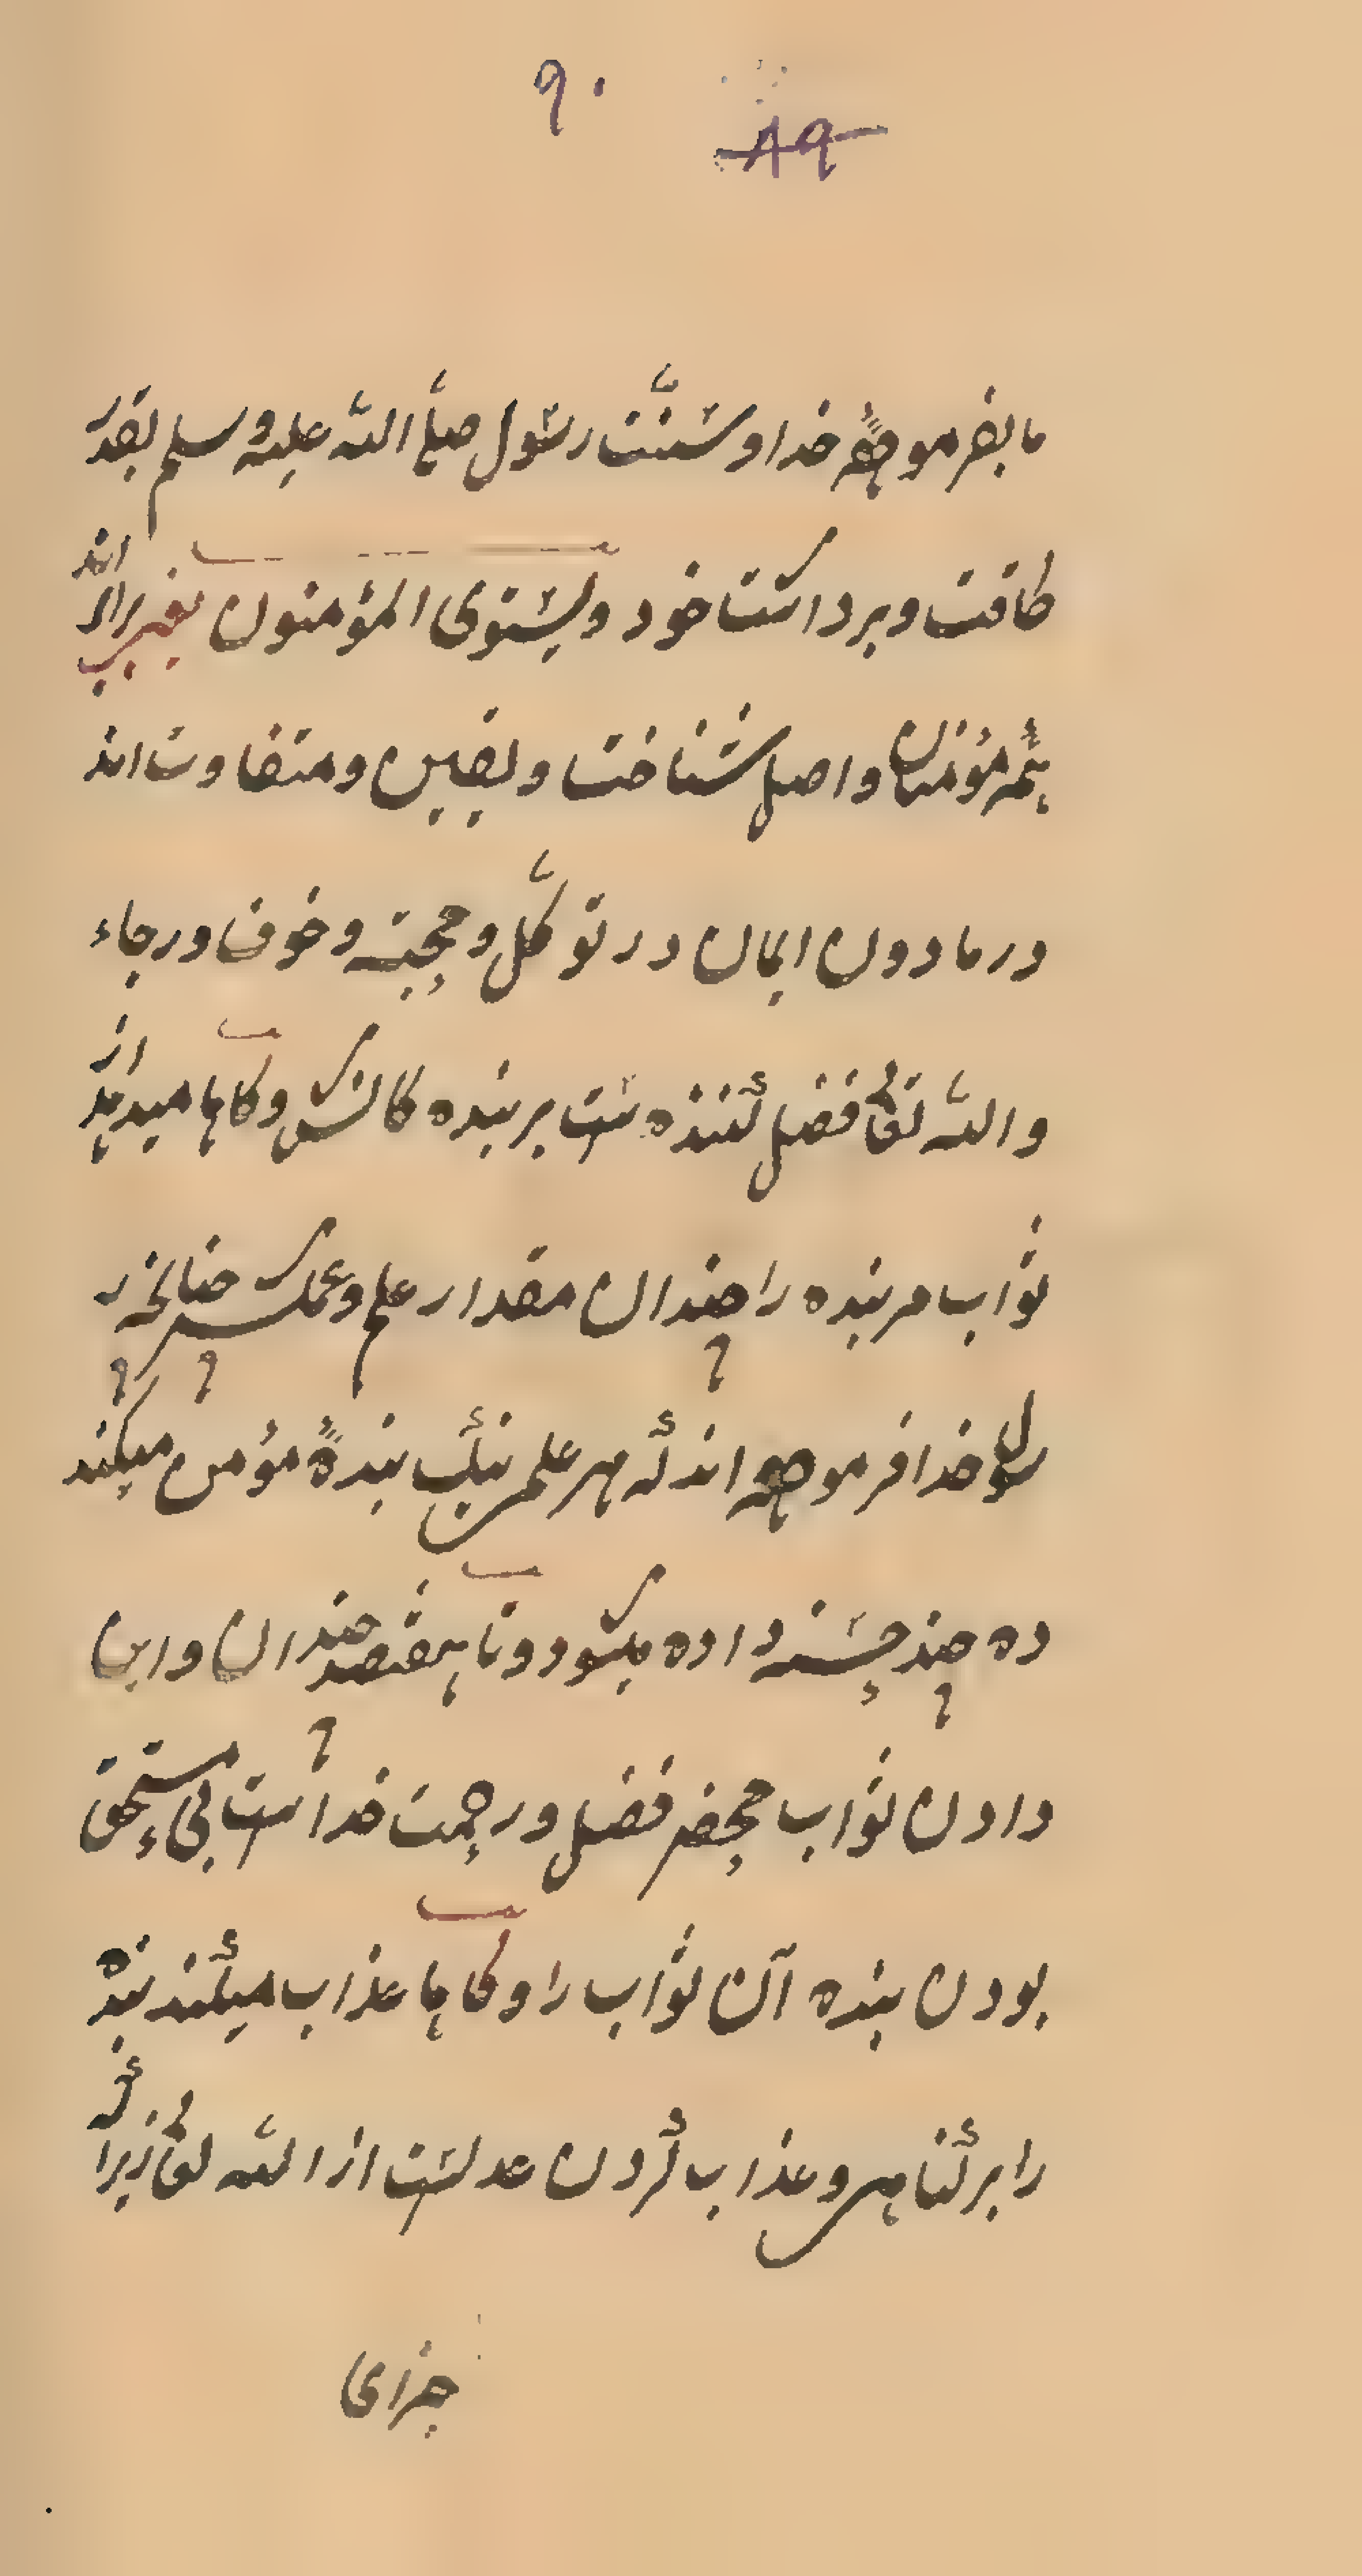 ۹۰ ۸۹
ما بفرمودهٔ خدا و سنّت رسول صلّی اللّه علیه و سلم بقدر
طاقت و برداشت خود و یستوی المؤمنون یعنی برابر اند
همه مؤمنان و اصل شناخت و یقین و متفاوت اند
در مادون ایمان در توکّل و محبت و خوف و رجاء
و اللّه تعالی فضل کننده ست بر بنده کانش و کاها میدهد از
ثواب مر بنده را چندان مقدار علم و عملش چنانچه ر
رسول خدا فرموده اند که هر عمل نیک بندهٔ مؤمن میکند
ده چند حسنه داده میشود و تا هفتصد چندان و این
دادن ثواب محض فضل و رحمت خداست بی مستحق
بودن بنده آن ثواب را و کاها عذاب میکند بنده
را بر کناهی و عذاب کردن عدلست از اللّه تعالی زیرا که
جزای